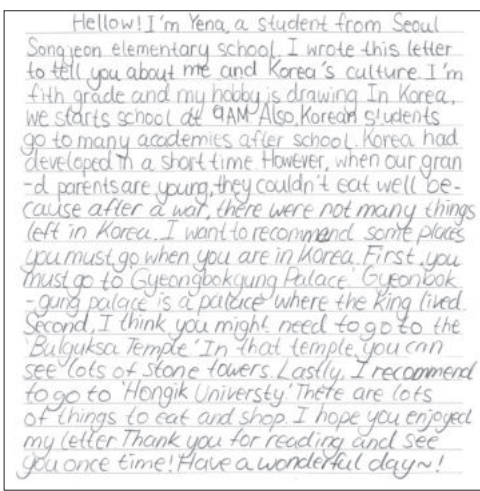 Hellow! I'm Yena, a student from Seoul
Songjeon elementary school. I wrote this letter
to tell you about me and Korea's culture. I'm
fith grade and my hobby is drawing In Korea,
we starts school at 9AM. Also, Korean students
go to many academies after school. Korea had
developed in a short time However, when our gran
-d parents are young, they couldn't eat well be-
cause after a war, there were not many things
left in Korea. I want to recommend some places
you must go when you are in Korea. First, you
must go to Gyeongbokgung Palace' Gyeonbok
-gung palace is a palace where the king lived.
Second, I think you might need to go to the
'Bulguksa Temple' In that temple, you can
see lots of stone towers. Lastly, I recommend
to go to 'Hongik Universty' There are lots
of things to eat and shop. I hope you enjoyed
my letter Thank you for reading and see
you once time! Have a wonderful day~!